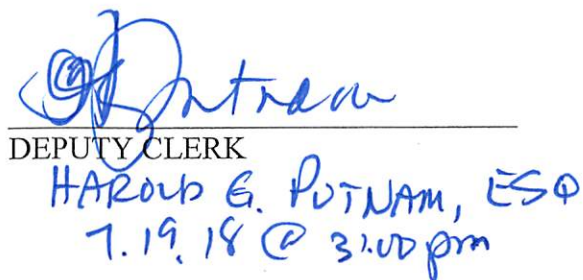 Putnam
DEPUTY CLERK
HAROLD G. PUTNAM, ESQ
7.19.18 @ 3:00 pm